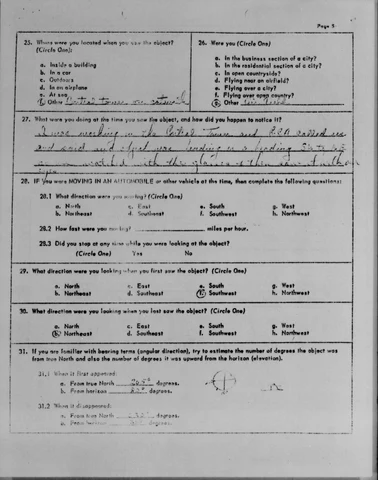 Page 5
25. Where were you located when you saw the object?
(Circle One):
a. Inside a building
b. In a car
c. Outdoors
d. In an airplane
e. At sea
f. Other Control tower on
26. Were you (Circle One)
a. In the business section of a city?
b. In the residential section of a city?
c. In open countryside?
d. Flying near an airfield?
e. Flying over a city?
f. Flying over open country?
g. Other
27. What were you doing at the time you saw the object, and how did you happen to notice it?
I was working in the Control Tower and called
and said object was
watched with the glasses
28. IF you were MOVING IN AN AUTOMOBILE or other vehicle at the time, then complete the following questions:
28.1 What direction were you moving? (Circle One)
a. North c. East e. South g. West
b. Northeast d. Southeast f. Southwest h. Northwest
28.2 How fast were you moving? miles per hour.
28.3 Did you stop at any time while you were looking at the object?
(Circle One) Yes No
29. What direction were you looking when you first saw the object? (Circle One)
a. North c. East e. South g. West
b. Northeast d. Southeast f. Southwest h. Northwest
30. What direction were you looking when you last saw the object? (Circle One)
a. North c. East e. South g. West
b. Northeast d. Southeast f. Southwest h. Northwest
31. If you are familiar with bearing terms (angular direction), try to estimate the number of degrees the object was
from true North and also the number of degrees it was upward from the horizon (elevation).
31.1 When it first appeared:
a. From true North degrees.
b. From horizon degrees.
31.2 When it disappeared:
a. From true North degrees.
b. From horizon degrees.